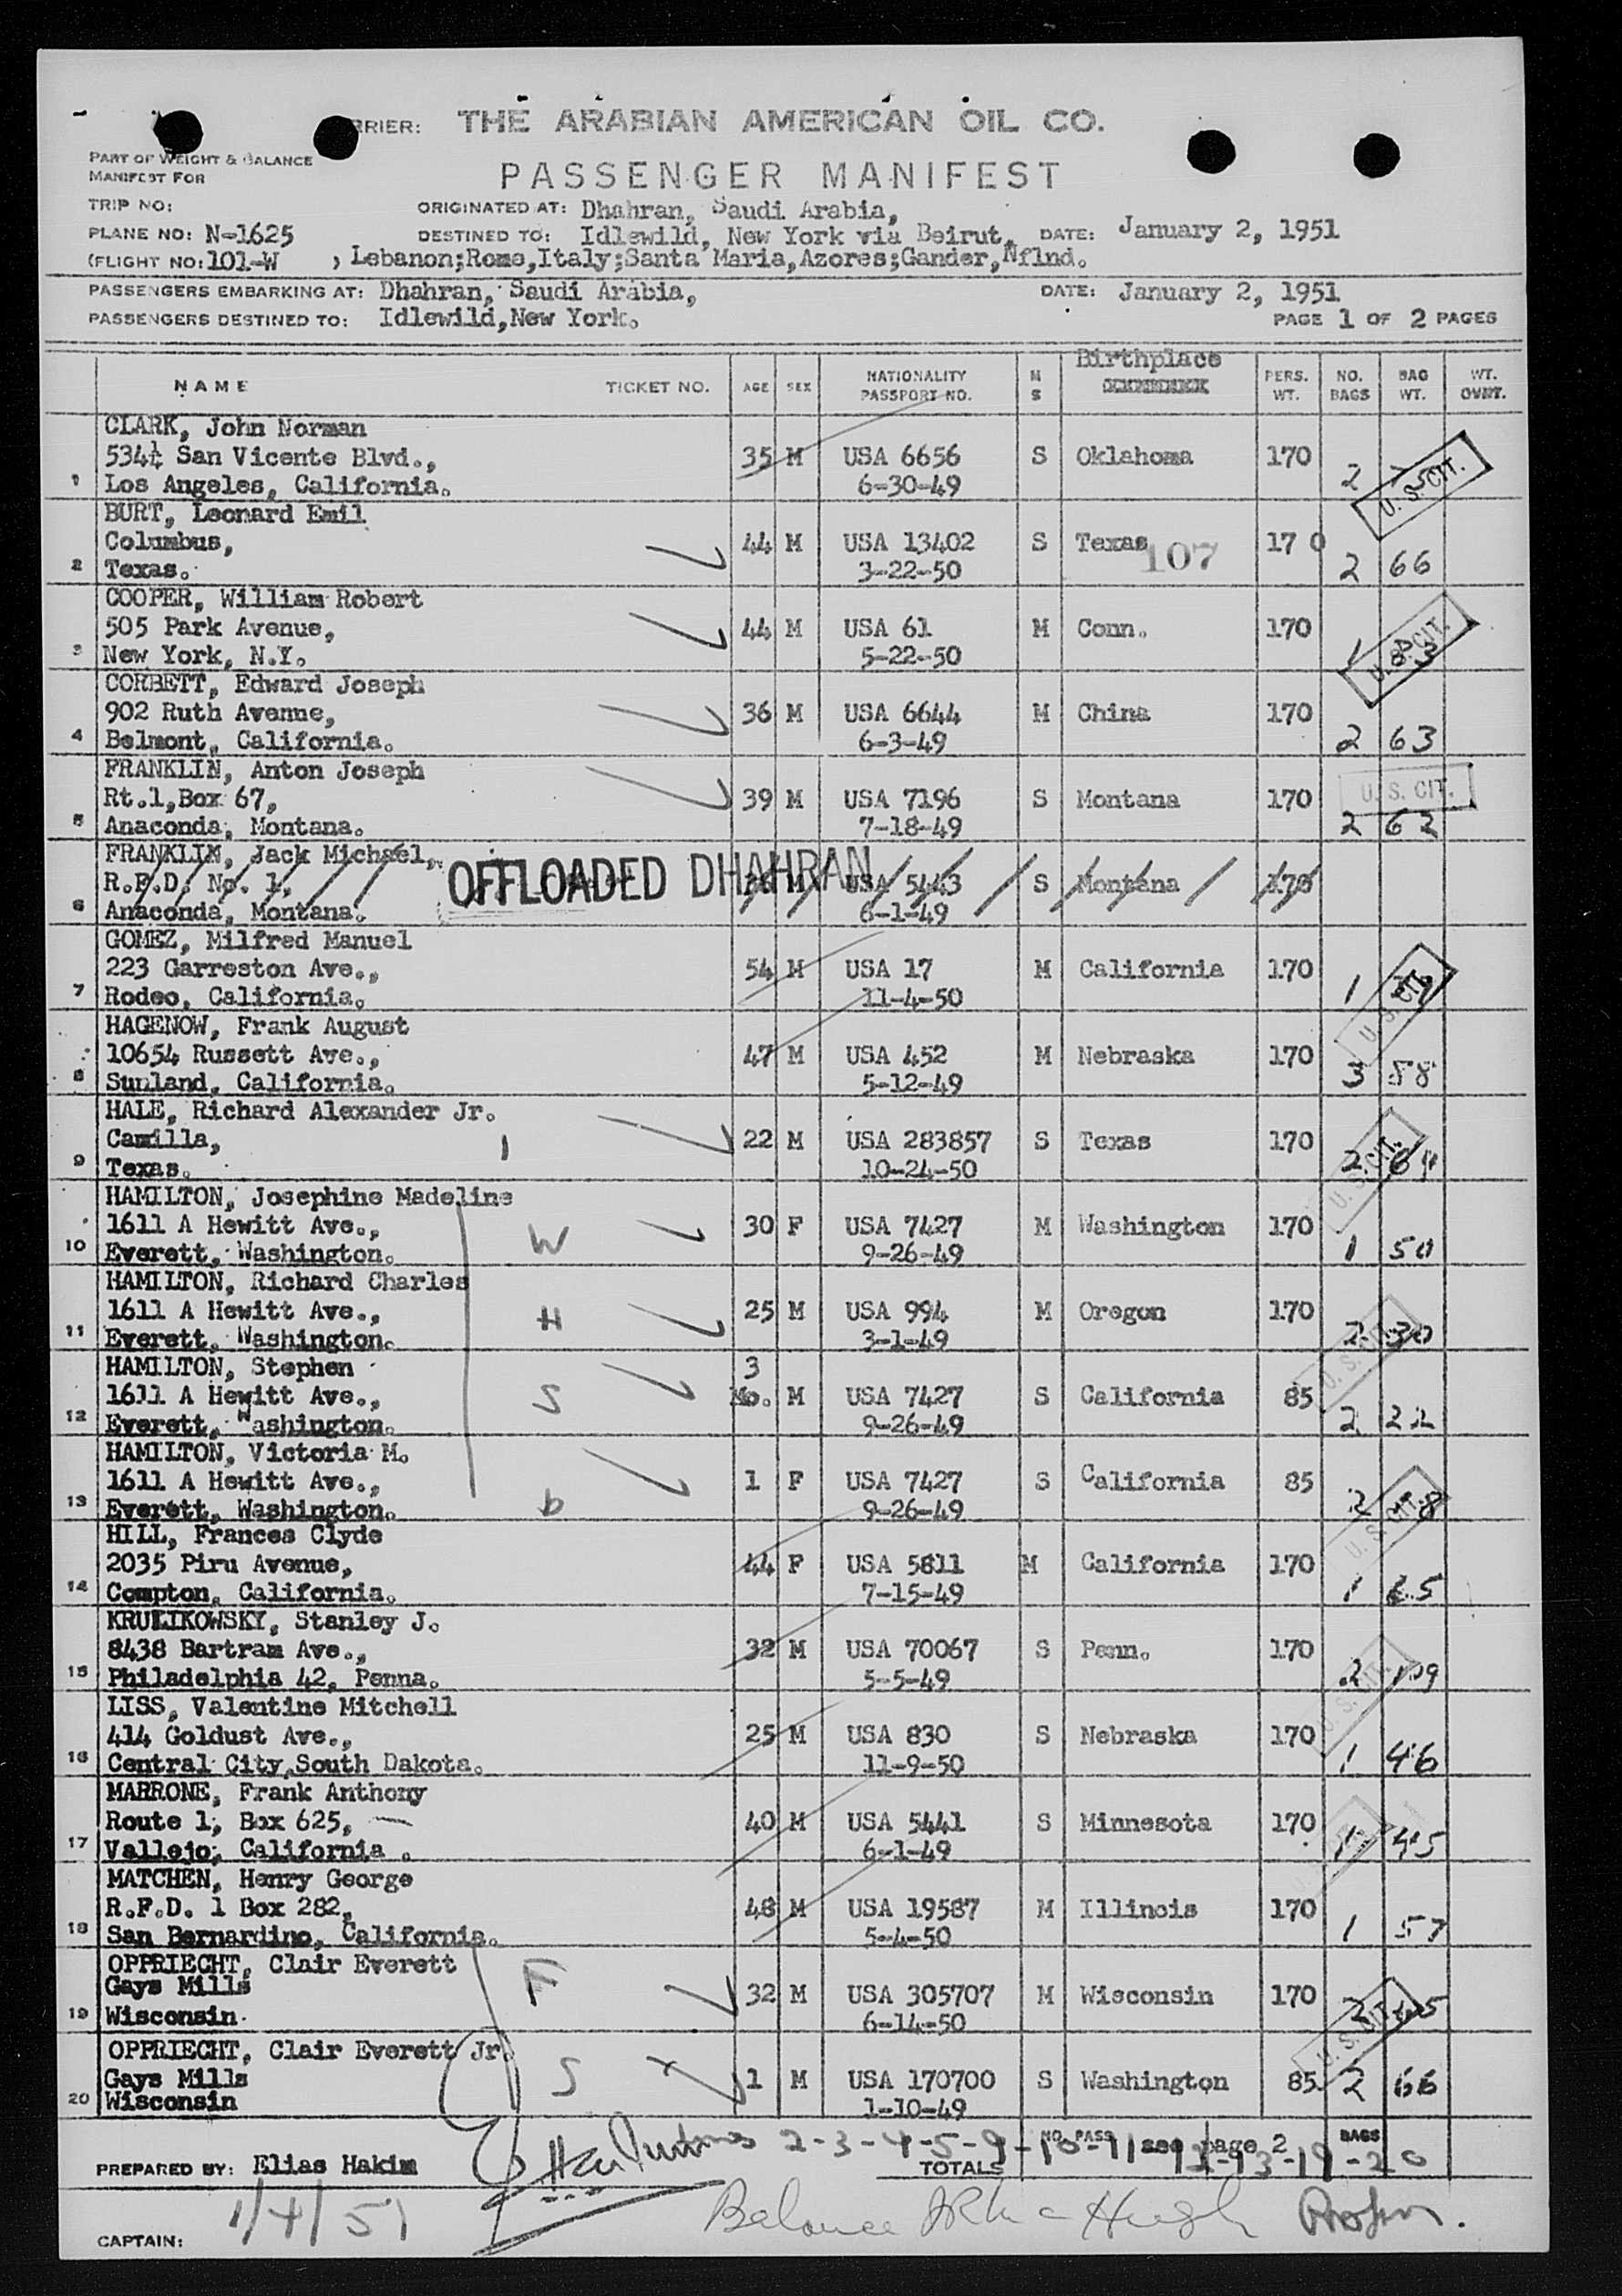 RRIER: THE ARABIAN AMERICAN OIL CO.
PART OF WEIGHT & BALANCE
MANIFEST FOR
PASSENGER MANIFEST
TRIP NO:
ORIGINATED AT: Dhahran, Saudi Arabia,
PLANE NO: N-1625
DESTINED TO: Idlewild, New York via Beirut, DATE: January 2, 1951
(FLIGHT NO: 101-W , Lebanon;Rome,Italy;Santa Maria,Azores;Gander,Nflnd.
PASSENGERS EMBARKING AT: Dhahran, Saudi Arabia, DATE: January 2, 1951
PASSENGERS DESTINED TO: Idlewild,New York. PAGE 1 OF 2 PAGES
NAME TICKET NO. AGE SEX NATIONALITY PASSPORT NO. M S Birthplace PERS. WT. NO. BAGS BAG WT. WT. OVRT.
CLARK, John Norman
534¼ San Vicente Blvd., 35 M USA 6656 S Oklahoma 170 2
1 Los Angeles, California. 6-30-49 U. S. CIT.
BURT, Leonard Emil
Columbus, 44 M USA 13402 S Texas 107 170
2 Texas. 3-22-50 2 66
COOPER, William Robert
505 Park Avenue, 44 M USA 61 M Conn. 170
3 New York, N.Y. 5-22-50 1 U. S. CIT.
CORBETT, Edward Joseph
902 Ruth Avenue, 36 M USA 6644 M China 170
4 Belmont, California. 6-3-49 2 63
FRANKLIN, Anton Joseph
Rt.1,Box 67, 39 M USA 7196 S Montana 170 U. S. CIT.
5 Anaconda, Montana. 7-18-49 2 62
FRANKLIN, Jack Michael,
R.F.D. No. 1, OFFLOADED DHAHRAN M USA 5443 S Montana 170
6 Anaconda, Montana. 6-1-49
GOMEZ, Milfred Manuel
223 Garreston Ave., 54 M USA 17 M California 170
7 Rodeo, California. 11-4-50 1 U. S. CIT.
HAGENOW, Frank August
10654 Russett Ave., 47 M USA 452 M Nebraska 170
8 Sunland, California. 5-12-49 3 58
HALE, Richard Alexander Jr.
Camilla, 1 22 M USA 283857 S Texas 170
9 Texas. 10-24-50 2 64 U. S. CIT.
HAMILTON, Josephine Madeline
1611 A Hewitt Ave., W 30 F USA 7427 M Washington 170
10 Everett, Washington. 9-26-49 1 50
HAMILTON, Richard Charles
1611 A Hewitt Ave., H 25 M USA 994 M Oregon 170
11 Everett, Washington. 3-1-49 2 30 U. S. CIT.
HAMILTON, Stephen 3
1611 A Hewitt Ave., S Mo. M USA 7427 S California 85
12 Everett, Washington. 9-26-49 2 22
HAMILTON, Victoria M.
1611 A Hewitt Ave., 1 F USA 7427 S California 85
13 Everett, Washington. D 9-26-49 2 U. S. CIT.
HILL, Frances Clyde
2035 Piru Avenue, 44 F USA 5811 M California 170
14 Compton, California. 7-15-49 1 65
KRULIKOWSKY, Stanley J.
8438 Bartram Ave., 32 M USA 70067 S Penn. 170
15 Philadelphia 42, Penna. 5-5-49 2 U. S. CIT.
LISS, Valentine Mitchell
414 Goldust Ave., 25 M USA 830 S Nebraska 170
16 Central City,South Dakota. 11-9-50 1 46
MARRONE, Frank Anthony
Route 1, Box 625, 40 M USA 5441 S Minnesota 170
17 Vallejo, California . 6-1-49 1 45
MATCHEN, Henry George
R.F.D. 1 Box 282, 48 M USA 19587 M Illinois 170
18 San Bernardino, California. 5-4-50 1 57
OPPRIECHT, Clair Everett
Gays Mills F 32 M USA 305707 M Wisconsin 170
19 Wisconsin 6-14-50 2 U. S. CIT.
OPPRIECHT, Clair Everett Jr.
Gays Mills S 1 M USA 170700 S Washington 85 2 66
20 Wisconsin 1-10-49
2-3-4-5-9-10-11-12-13-19-20
NO. PASS see page 2 BAGS
PREPARED BY: Elias Hakim TOTALS
1/4/51 Balance
CAPTAIN: